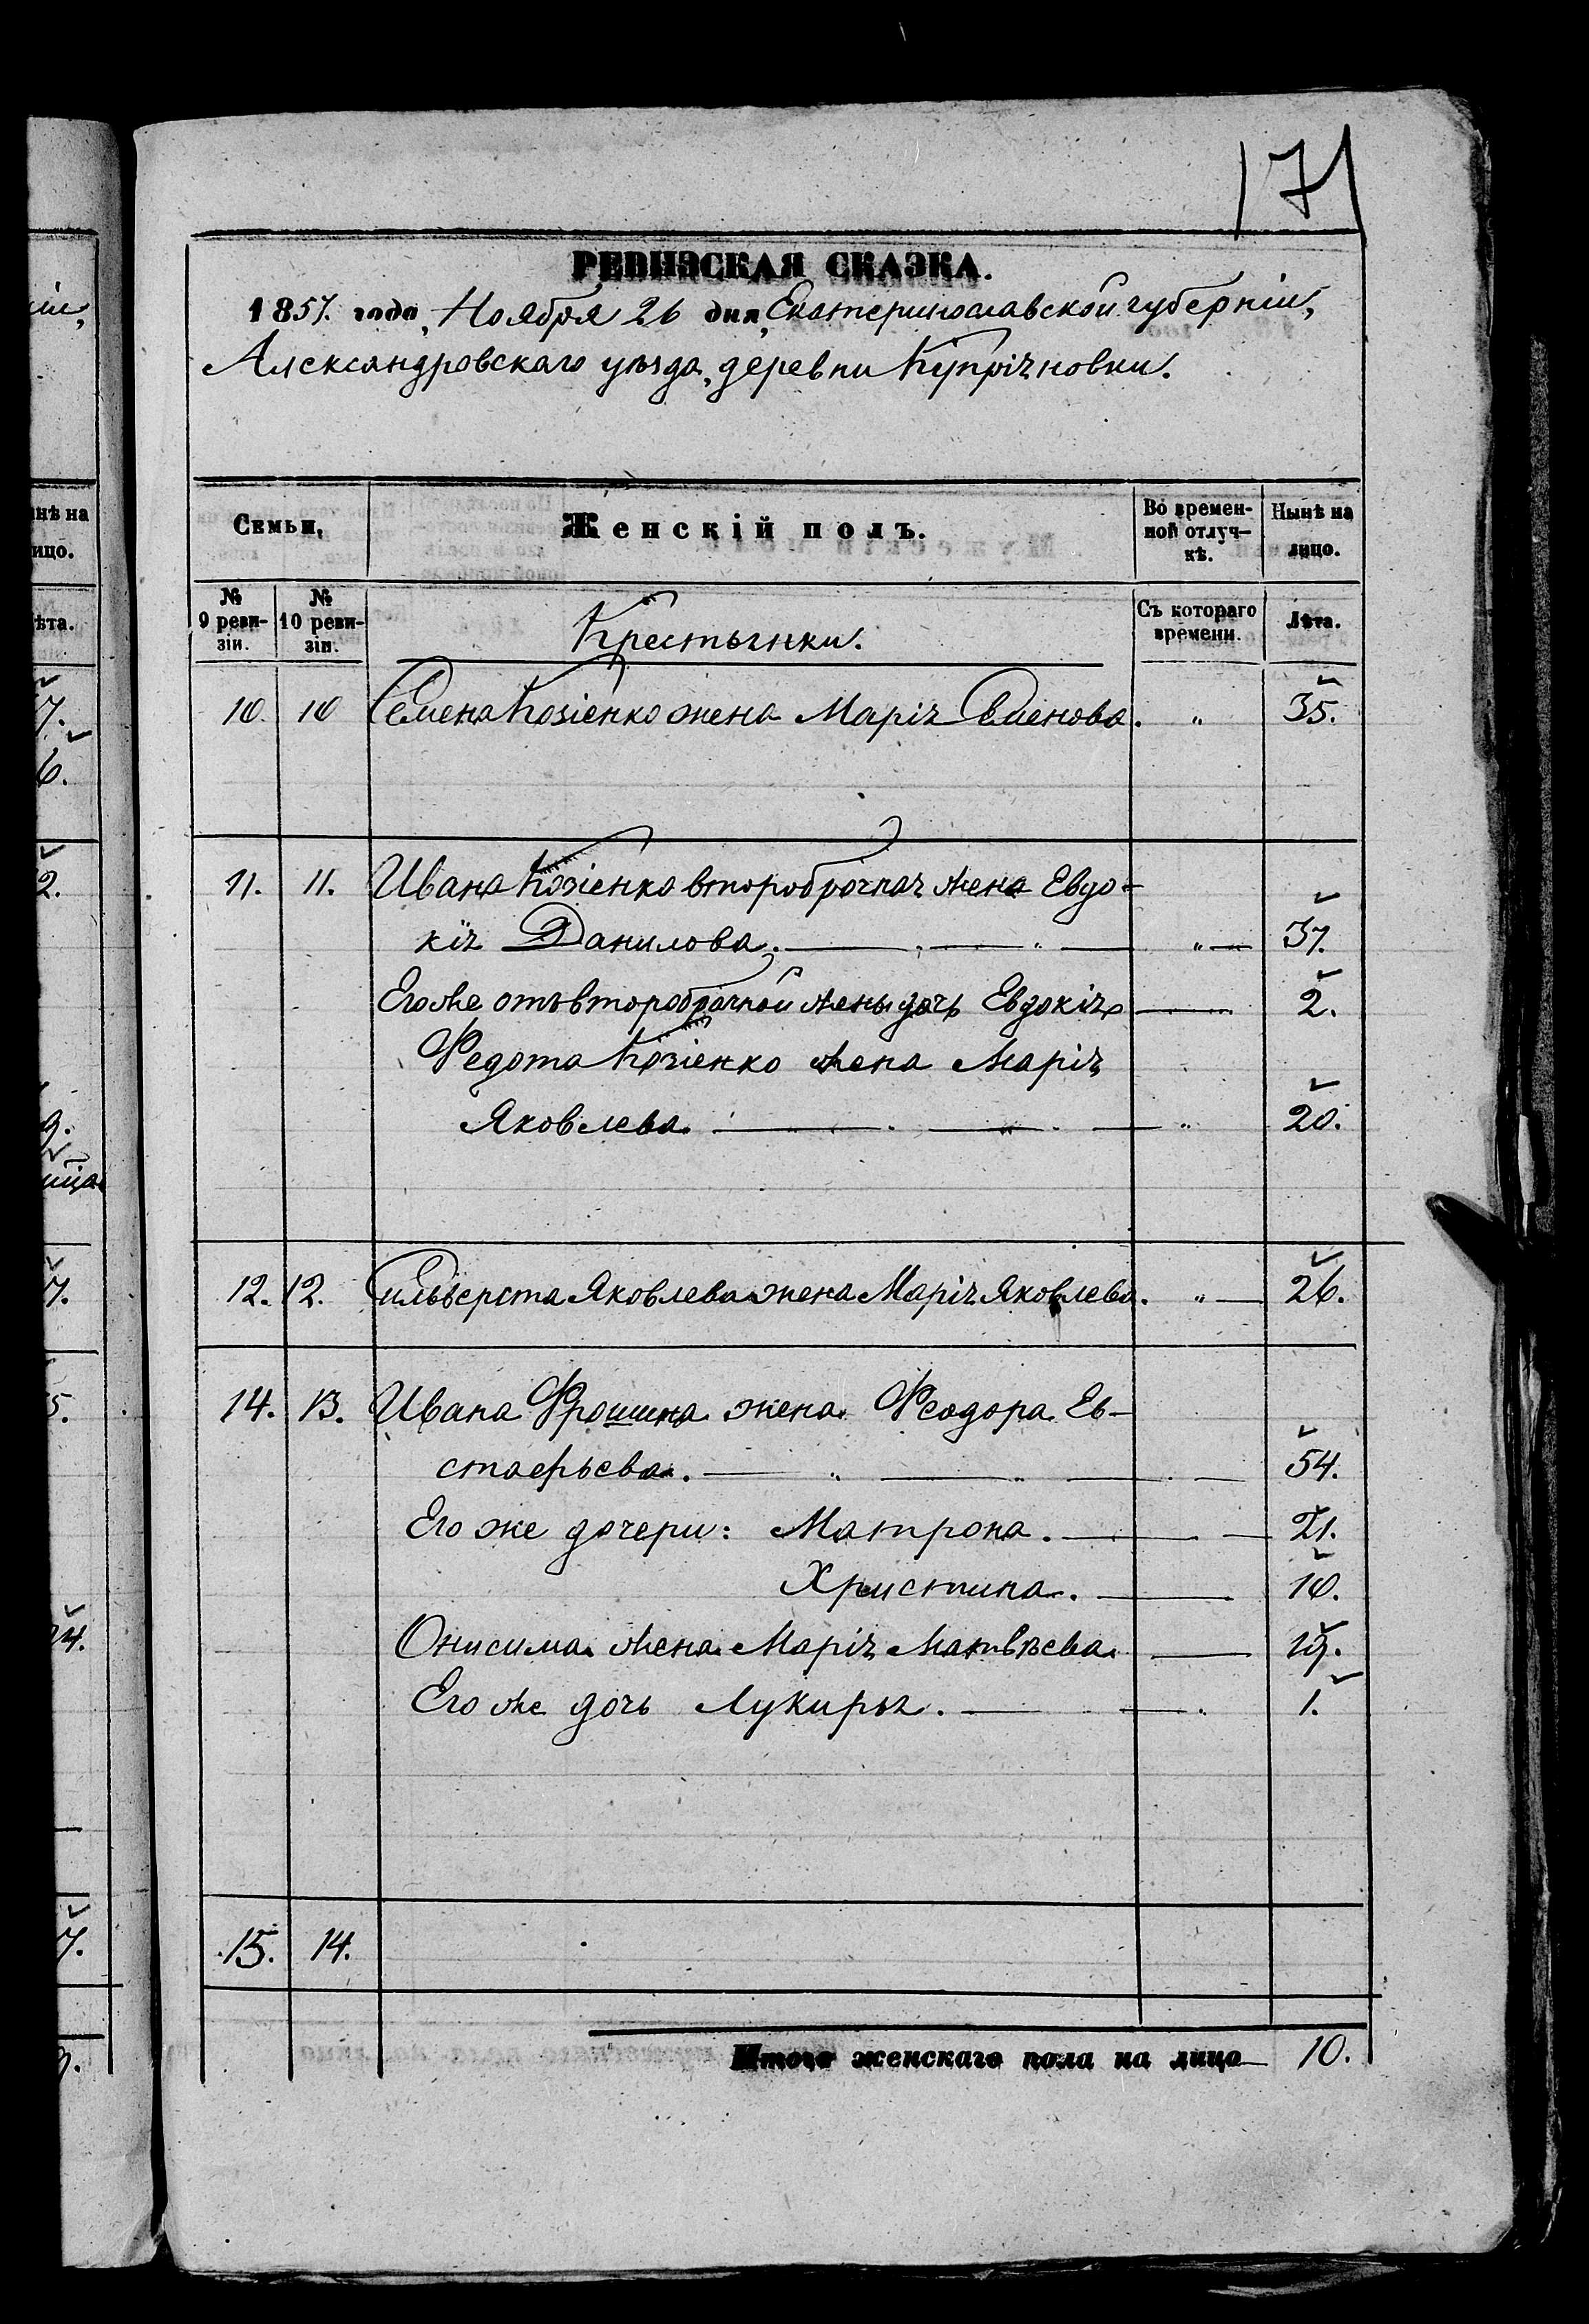 171
РЕВИЗСКАЯ СКАЗКА.
1857. года, Ноября 26 дня, Екатеринославской губерніи,
Александровскаго уѣзда, деревни Купріяновки.
Семьи, Женскій полъ. Во времен-ной отлуч-кѣ. Нынѣ на лицо.
№ 9 реви-зіи. № 10 реви-зіи. Крестьянки. Съ котораго времени. Лѣта.
10. 10 Семена Козіенко жена Марія Семенова. " 35.
11. 11. Ивана Козіенко второбрачная жена Евдо-
кія Данилова. " 37.
Его же отъ второбрачной жены дочь Евдокія 2.
Федота Козіенко жена Марія
Яковлева. " 20.
12. 12. Сильверста Яковлева жена Марія Яковлева. " 26.
14. 13. Ивана Фрошина жена Феодора Ев-
стафьева. 54.
Его же дочери: Матрона. 21.
Христина. 10.
Онисима жена Марія Матвѣева. 19.
Его же дочь Лукирья. 1.
15. 14.
Итого женскаго пола на лицо 10.